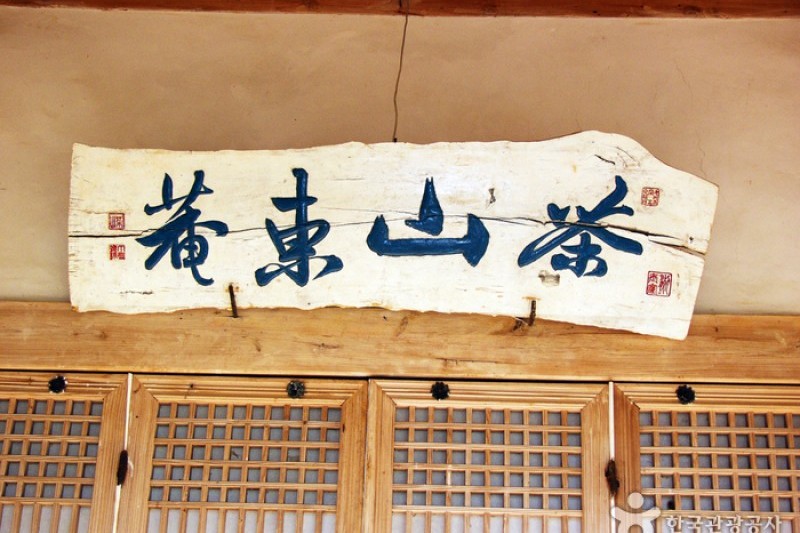 茶山東菴
한국관광공사